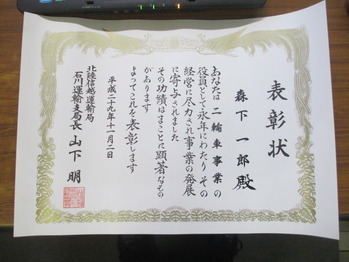 表彰状
森下一郎殿
あなたは二輪車事業の
役員として永年にわたりその
経営に尽力され事業の発展
に寄与されました
その功績はまことに顕著なもの
があります
よってこれを表彰します
平成二十九年十一月二日
北陸信越運輸局
石川運輸支局長山下明